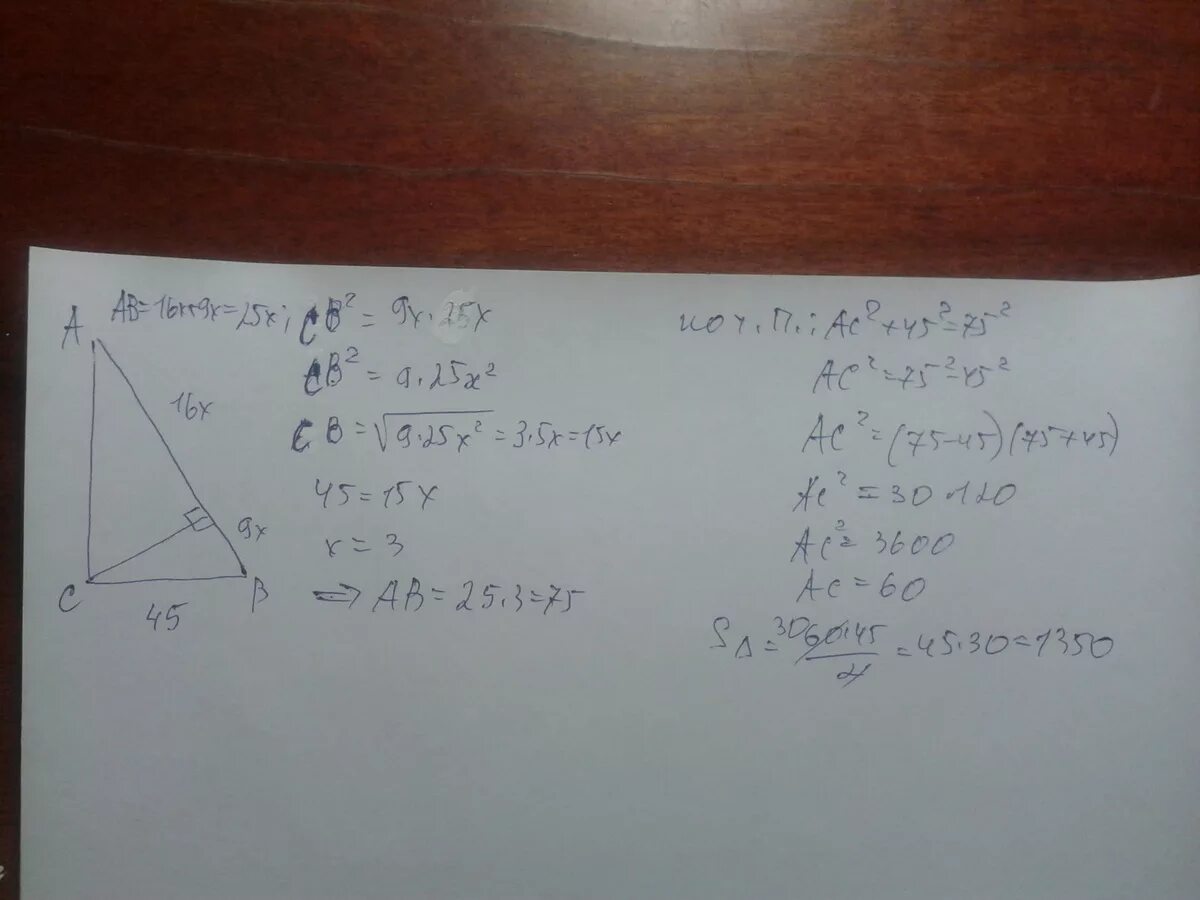 A
AB=16x+9x=25x; CB²=9x·25x
CB²=9·25x²
16x
CB=√9·25x²=3·5x=15x
45=15x
9x
x=3
C
B
45
=> AB=25·3=75
по т.П.: AC²+45²=75²
AC²=75²-45²
AC²=(75-45)(75+45)
AC²=30·120
AC²=3600
AC=60
S△=³⁰60·45/2=45·30=1350